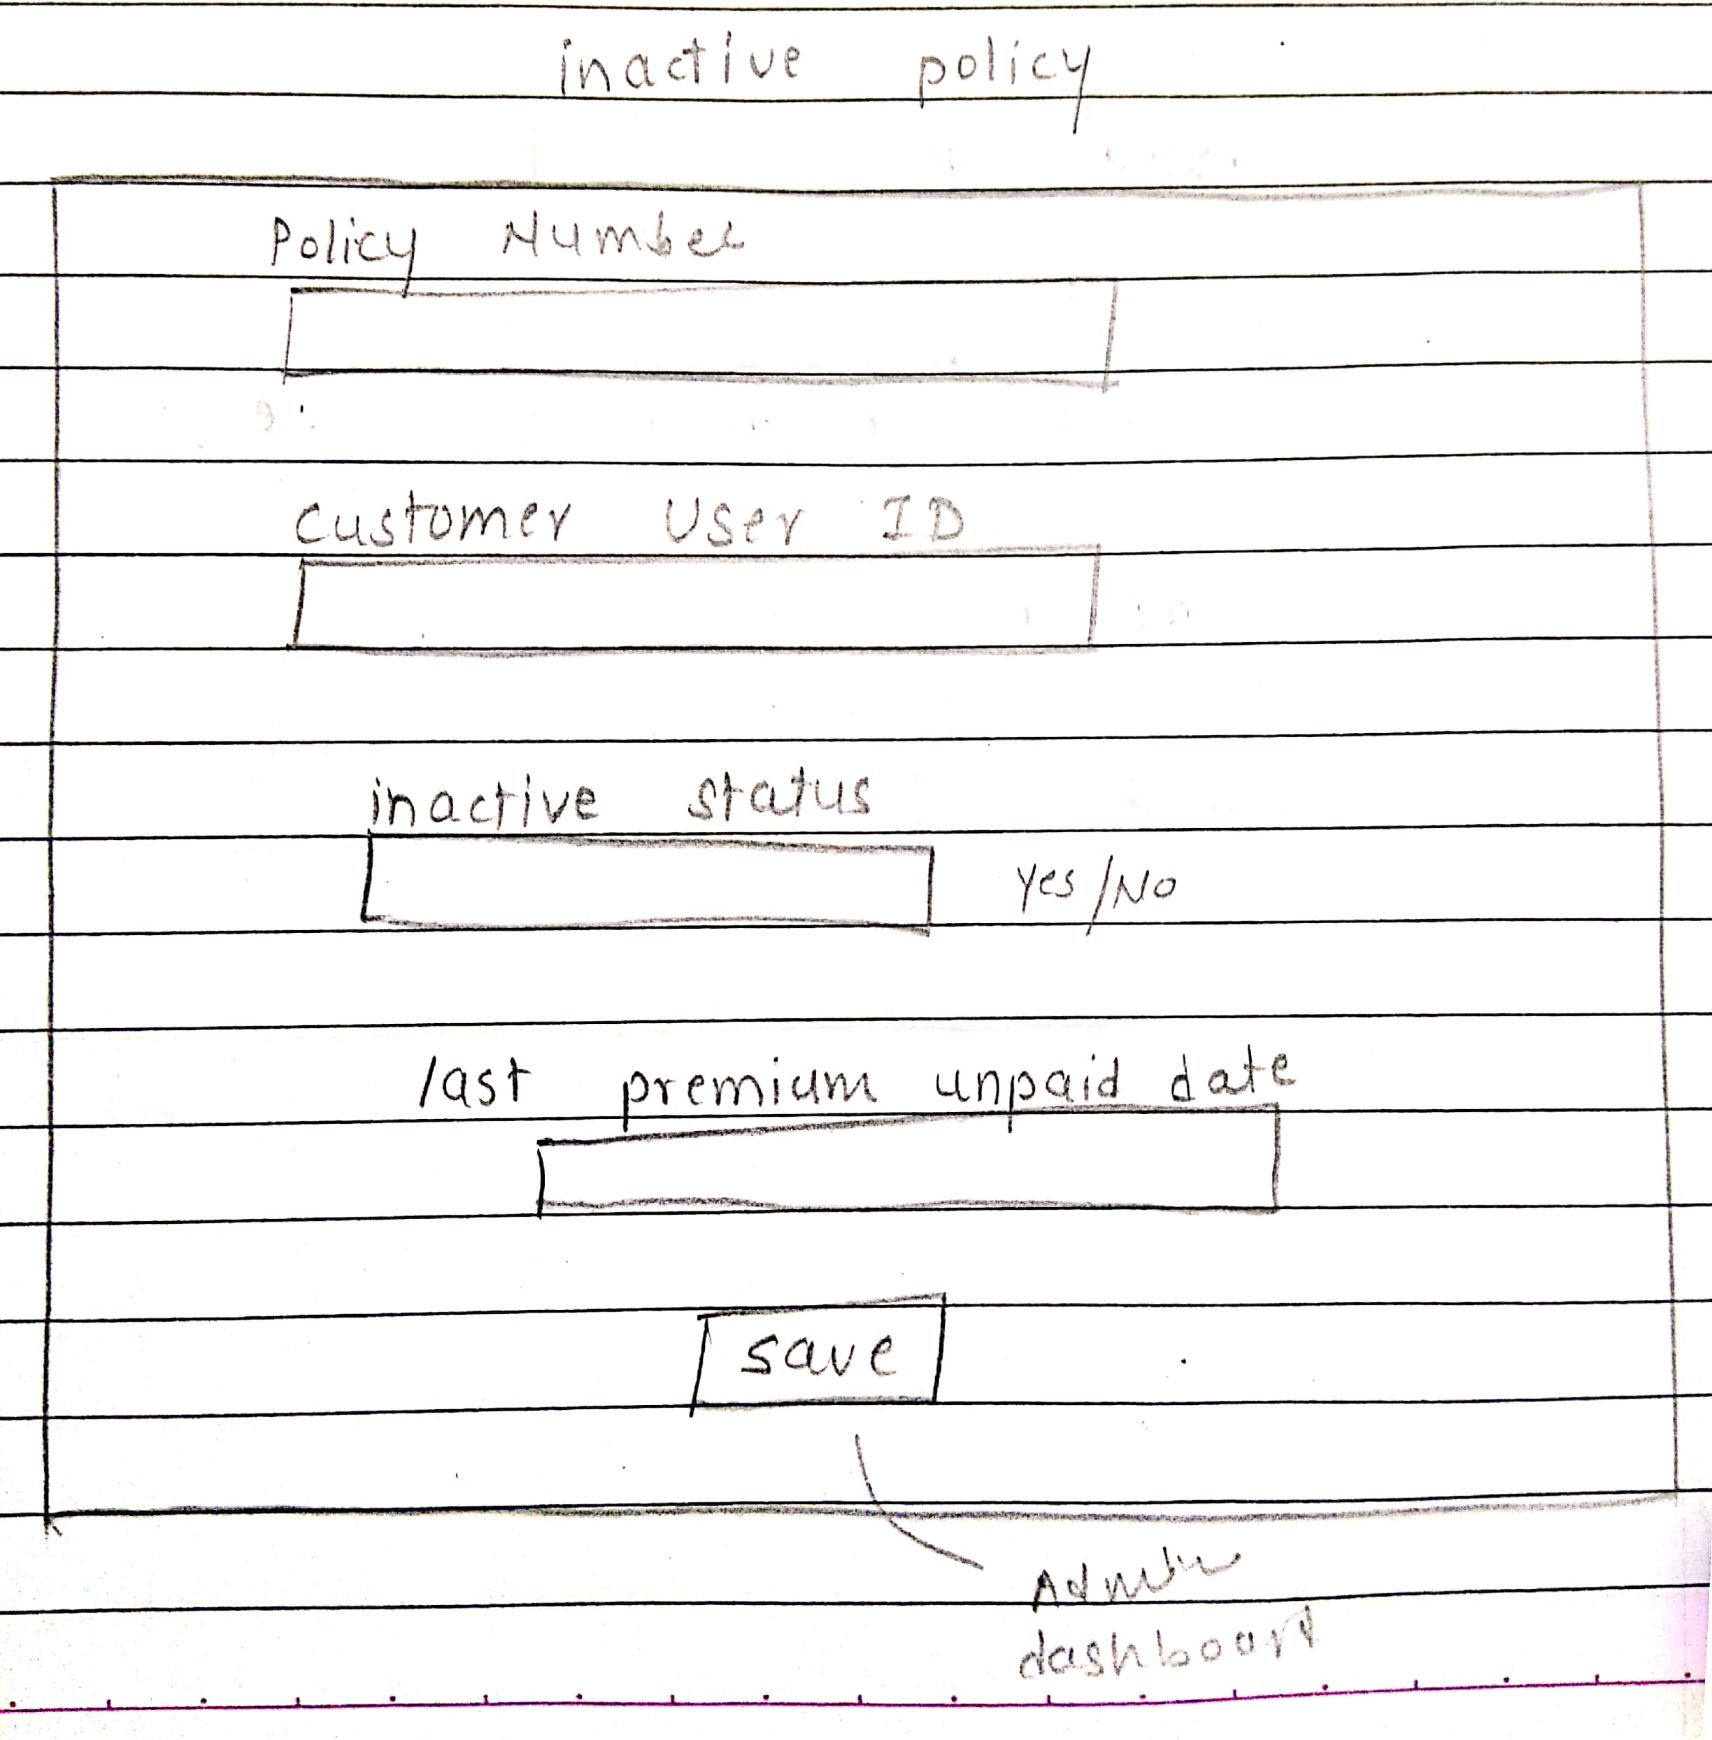 inactive policy
Policy Number
Customer User ID
inactive status
Yes/No
last premium unpaid date
save
Admin
dashboard